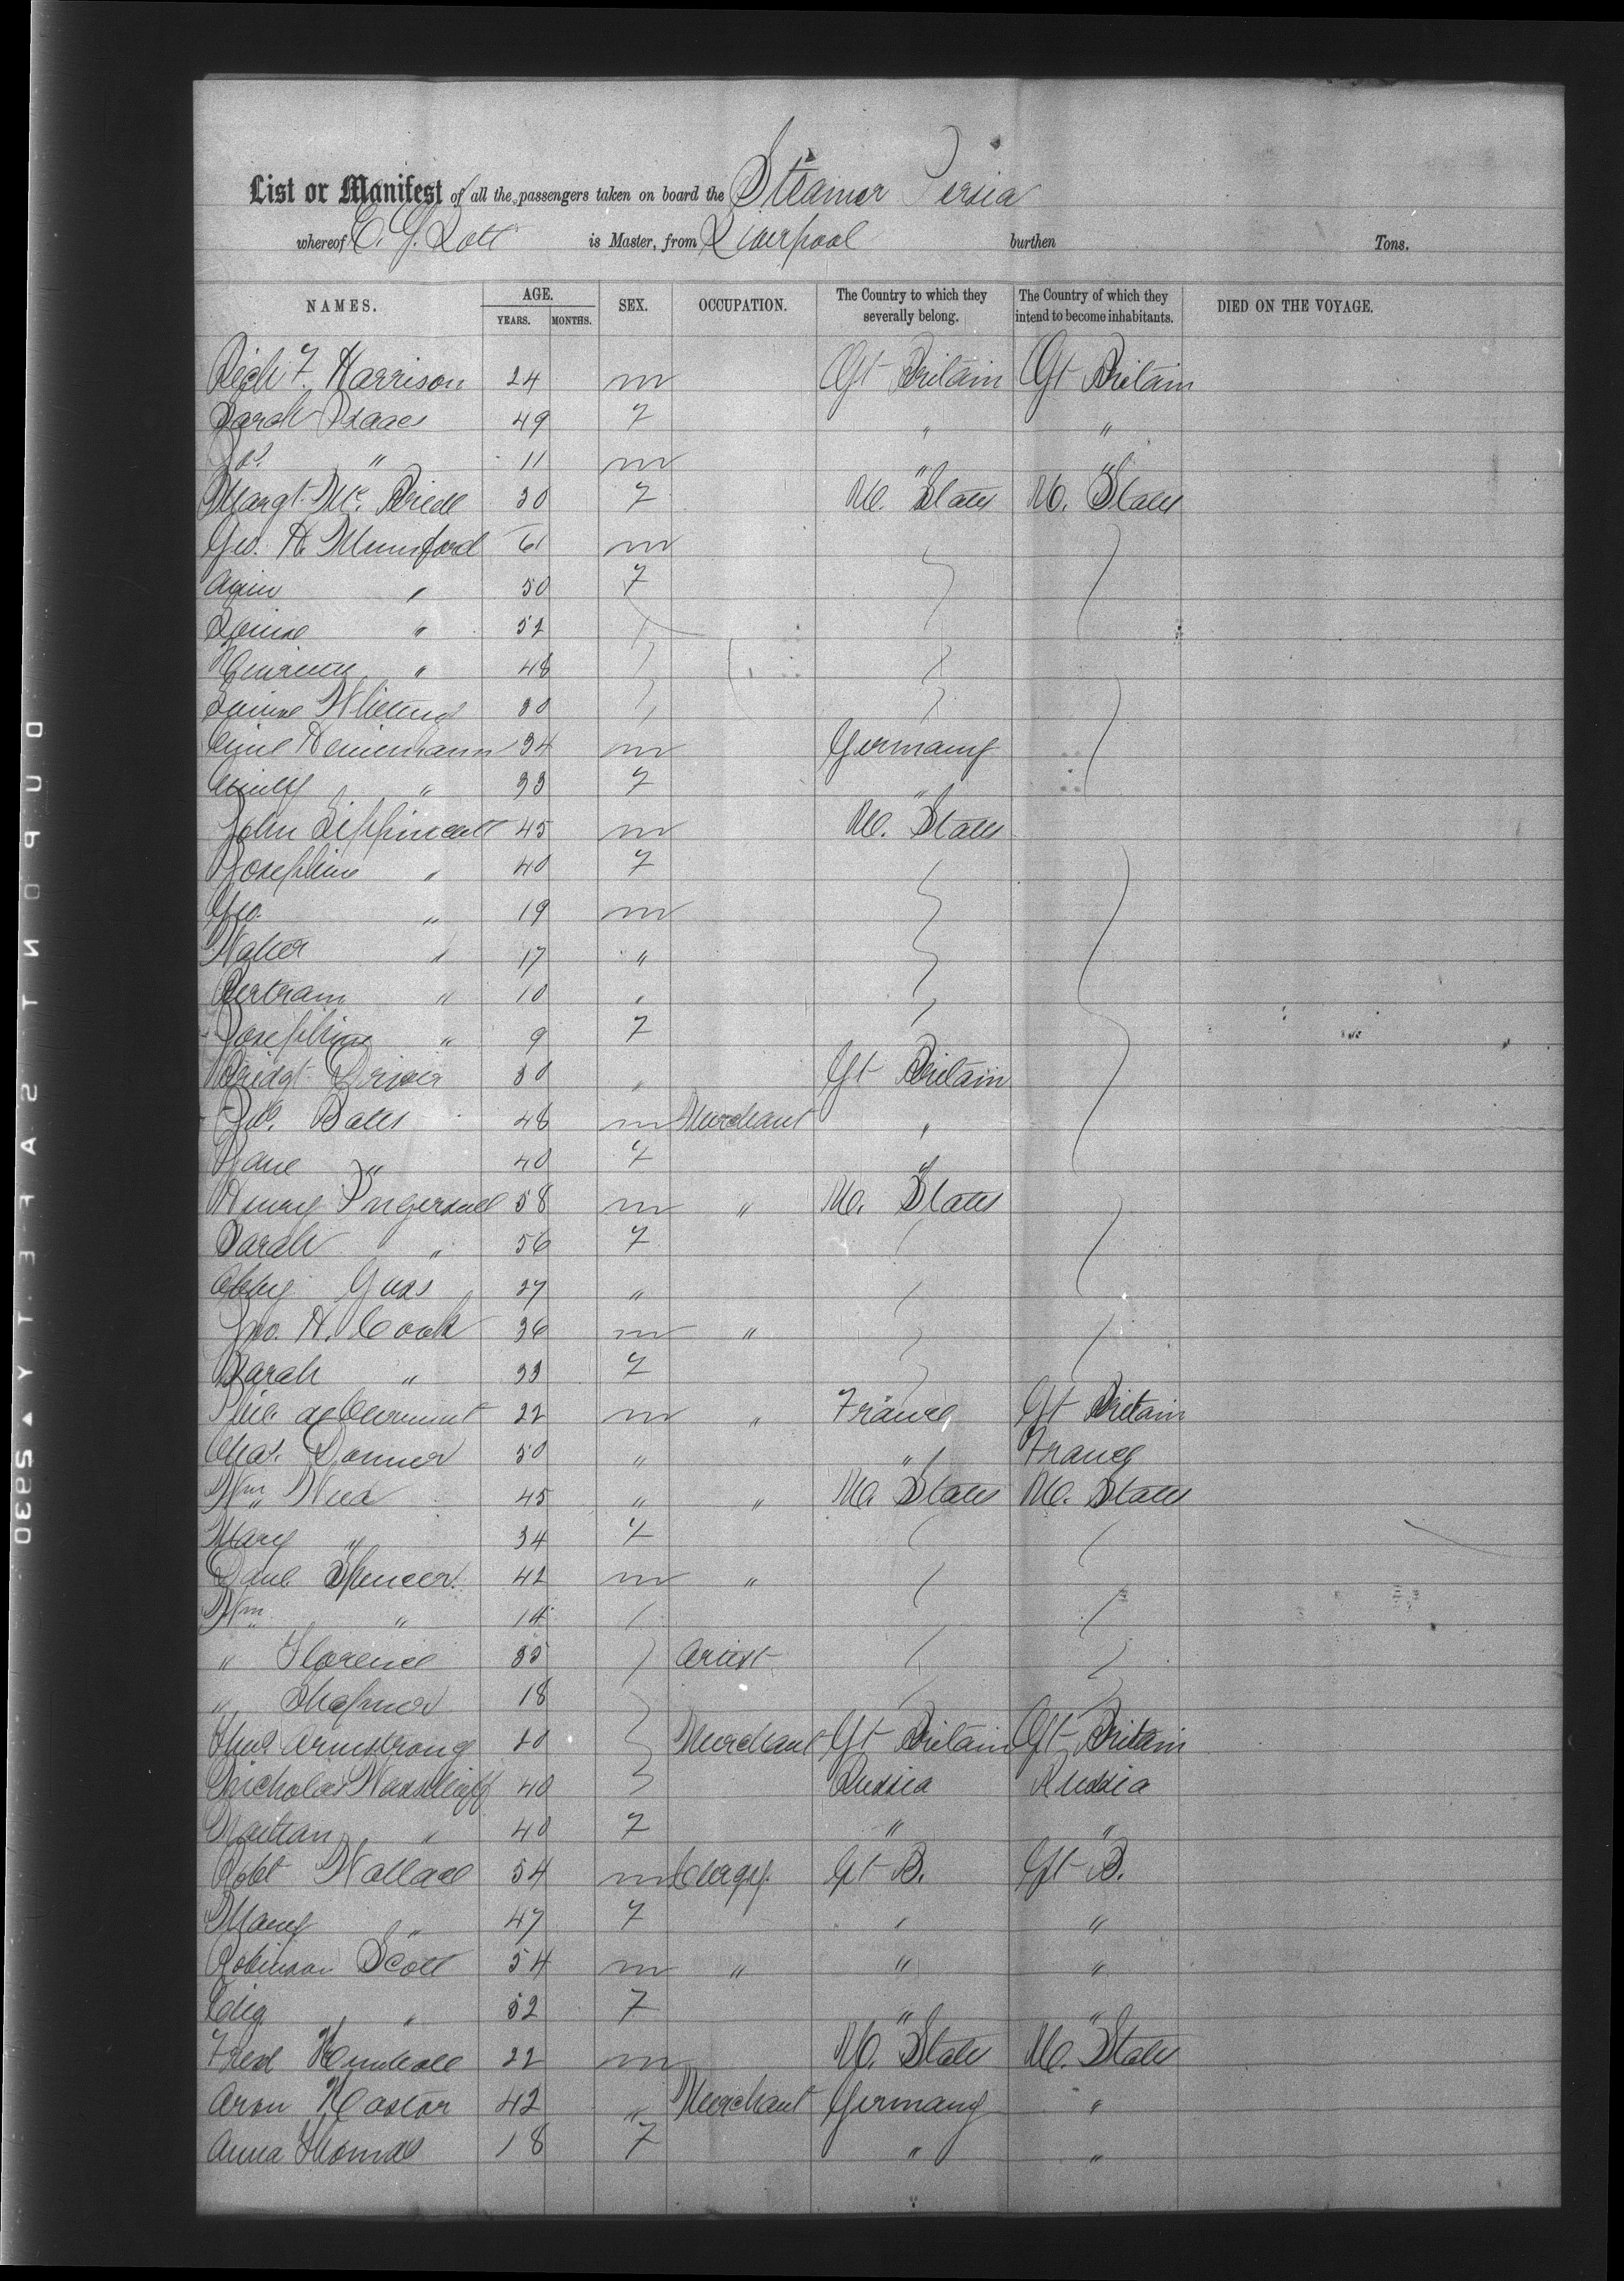 List or Manifest of all the passengers taken on board the Steamer Persia
whereof E. G. Lott is Master, from Liverpool burthen Tons.
NAMES. AGE. YEARS. MONTHS. SEX. OCCUPATION. The Country to which they severally belong. The Country of which they intend to become inhabitants. DIED ON THE VOYAGE.
Rich F. Harrison 24 m Gt Britain Gt Britain
Sarah Isaacs 49 F " "
Jos. " 11 m " "
Margt Mc Bride 30 F U. States U. States
Geo. H. Mumford 61 m
" 50 F
Louise " 52
" 48
Louise 30
Heinemann 34 m Germany
Emily " 33 F "
John Lippincott 45 m U. States
Josephine " 40 F
Geo. " 19 m
Walter " 17 "
Bertram " 10 "
Josephine " 9 F
Bridgt Driver 30 " Gt Britain
Bates 48 m Merchant "
Jane " 40 F "
Henry Ingersoll 58 m " U. States
Sarah " 56 F
Abby 27 "
Jno. H. Cook 36 m "
Sarah " 33 F
22 m " France Gt Britain
Chas. Donner 50 " " France
Wm 45 " " U. States U. States
Mary " 34 F
Danl. Spencer 42 m "
Wm " 14
" Florence 35 Artist
" 18
Thos Armstrong 20 Merchant Gt Britain Gt Britain
Nicholas 40 Russia Russia
" 40 F " "
Robt Wallace 54 m Clergy. Gt B. Gt B.
Mary " 47 F " "
Robinson Scott 54 m " " "
" 52 F " "
Fred 22 m U. States U. States
Aron Kastor 42 " Merchant Germany "
Anna Thomas 18 F " "
DUPONT SAFETY ▲ 52930